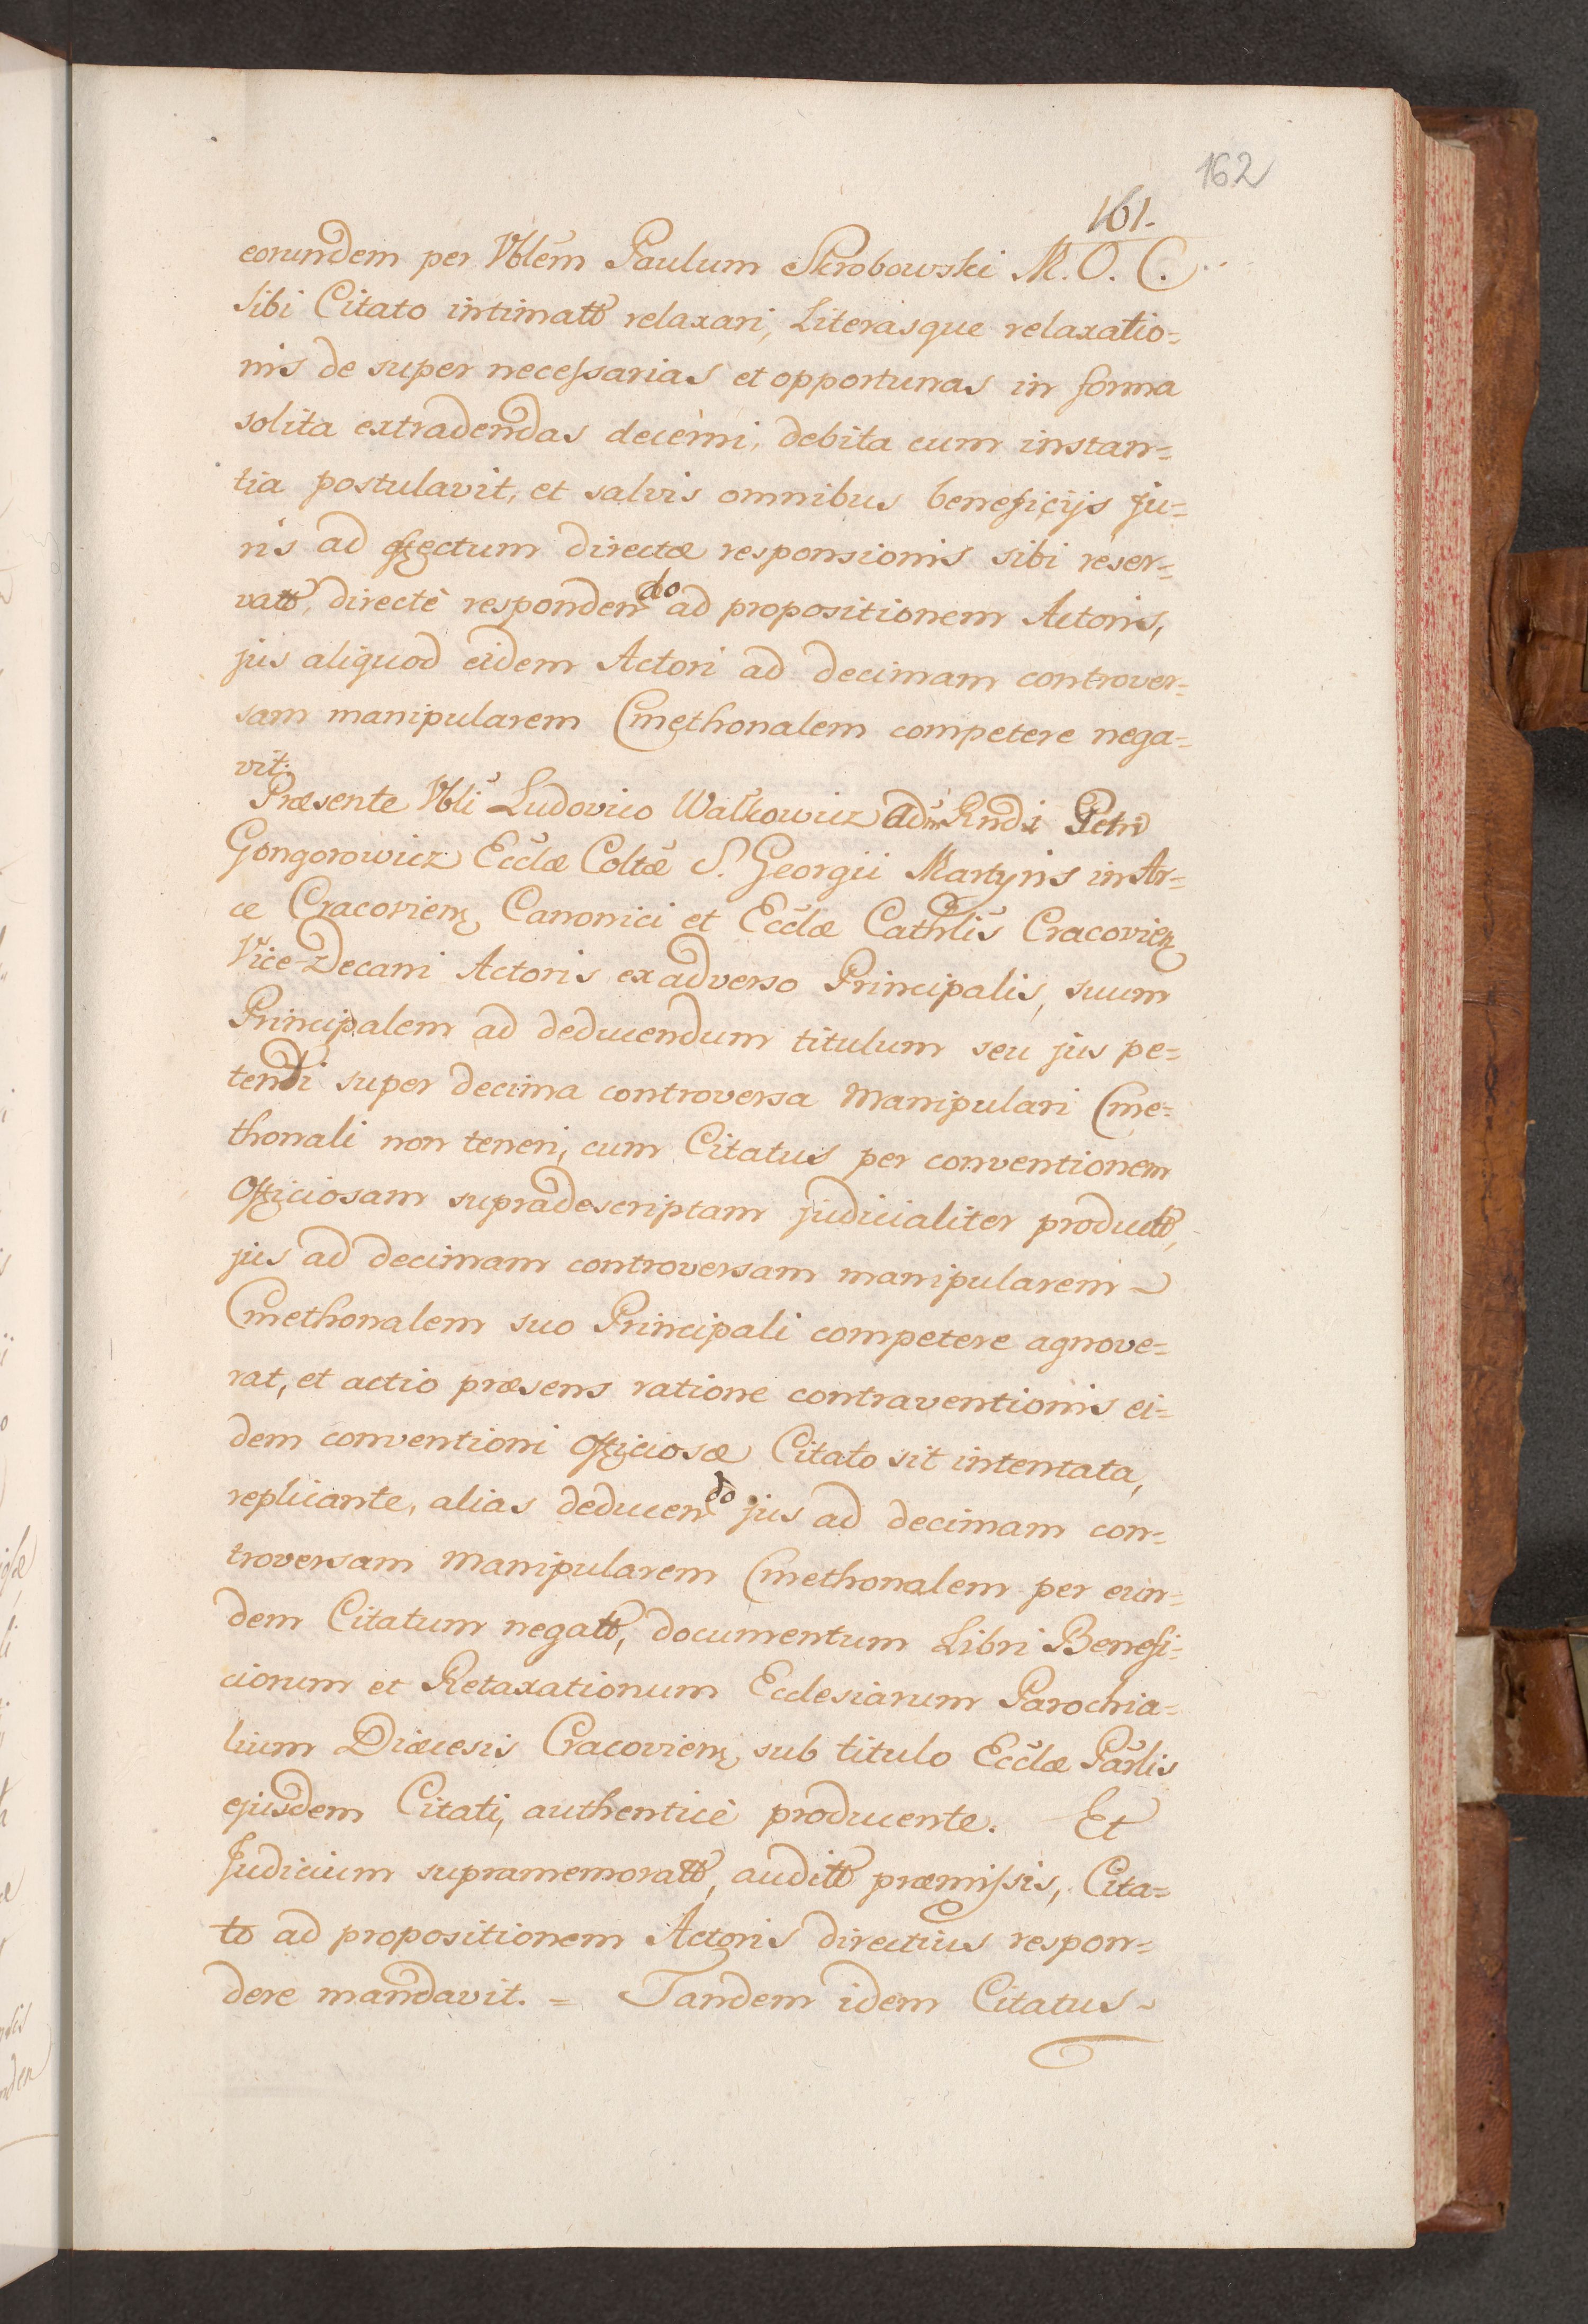 162
161.
eorundem per Vblem Paulum Skrobowski M. O. C.
sibi Citato intimatt relaxari, Literasque relaxatio=
nis de super necessarias et opportunas in forma
solita extradendas decerni, debita cum instan=
tia postulavit, et salvis omnibus beneficijs ju=
ris ad effectum directæ responsionis sibi reser=
vatt, directè respondendo ad propositionem Actoris,
jus aliquod eidem Actori ad decimam controver=
sam manipularem Cmethonalem competere nega=
vit.
Præsente Vbli Ludovico Walkowicz Adm Rndi Petri
Gongorowicz Ecclæ Coltæ S. Georgii Martyris in Ar=
ce Cracovien, Canonici et Ecclæ Cathlis Cracovien
Vice-Decani Actoris ex adverso Principalis, suum
Principalem ad deducendum titulum seu jus pe=
tendi super decima controversa Manipulari Cme=
thonali non teneri, cum Citatus per conventionem
Officiosam supradescriptam judicialiter productt,
jus ad decimam controversam manipularem
Cmethonalem suo Principali competere agnove=
rat, et actio præsens ratione contraventionis ei=
dem conventioni Officiosæ Citato sit intentata,
replicante, alias deducendo jus ad decimam con=
troversam Manipularem Cmethonalem per eun=
dem Citatum negatt, documentum Libri Benefi=
ciorum et Retaxationum Ecclesiarum Parochia=
lium Diæcesis Cracovien, sub titulo Ecclæ Parlis
ejusdem Citati, authenticè producente. Et
Judicium supramemoratt, auditt præmissis, Cita=
to ad propositionem Actoris directius respon=
dere mandavit. = Tandem idem Citatus